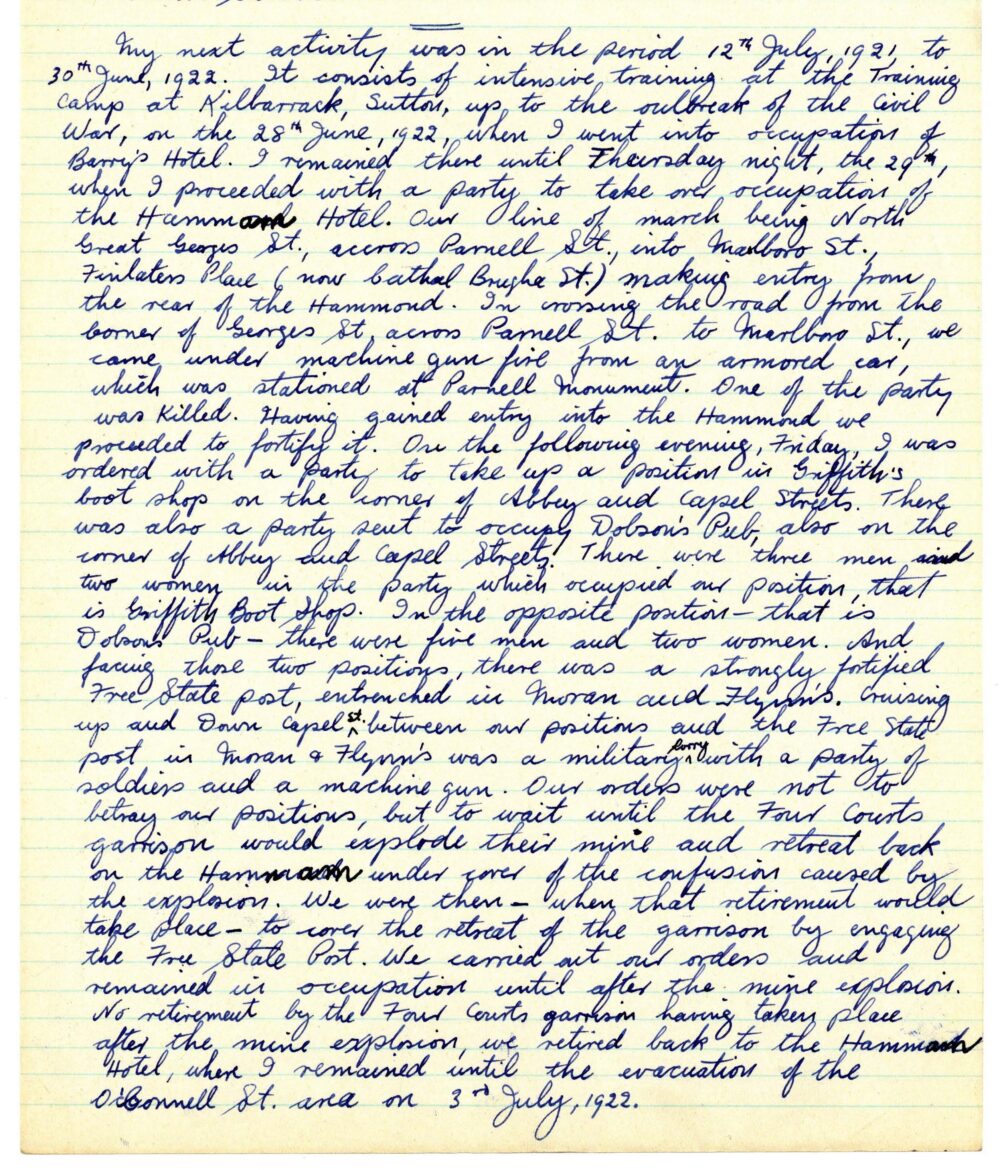 My next activity was in the period 12th July, 1921, to
30th June, 1922. It consists of intensive, training at the Training
Camp at Kilbarrack, Sutton, up to the outbreak of the Civil
War, on the 28th June, 1922, when I went into occupation of
Barry's Hotel. I remained there until Thursday night, the 29th,
when I proceeded with a party to take over occupation of
the Hammam Hotel. Our line of march being North
Great Georges St., accross Parnell St., into Marlboro St.,
Finlaters Place (now Cathal Brugha St.) making entry from
the rear of the Hammond. In crossing the road from the
corner of Georges St, across Parnell St. to Marlboro St., we
came under machine gun fire from an armored car,
which was stationed at Parnell Monument. One of the party
was killed. Having gained entry into the Hammond we
proceeded to fortify it. On the following evening, Friday, I was
ordered with a party to take up a position in Griffith's
boot shop on the corner of Abbey and Capel Streets. There
was also a party sent to occupy Dobson's Pub, also on the
corner of Abbey and Capel Streets. There were three men and
two women in the party which occupied our position, that
is Griffith Boot Shop. In the opposite position - that is
Dobsons Pub - there were five men and two women. And
facing those two positions, there was a strongly fortified
Free State post, entrenched in Moran and Flynn's. Cruising
up and Down Capel St. between our positions and the Free State
post in Moran & Flynn's was a military lorry with a party of
soldiers and a machine gun. Our orders were not to
betray our positions, but to wait until the Four Courts
garrison would explode their mine and retreat back
on the Hammam under cover of the confusion caused by
the explosion. We were then - when that retirement would
take place - to cover the retreat of the garrison by engaging
the Free State Post. We carried out our orders and
remained in occupation until after the mine explosion.
No retirement by the Four Courts garrison having taken place
after the mine explosion, we retired back to the Hammam
Hotel, where I remained until the evacuation of the
O'Connell St. area on 3rd July, 1922.